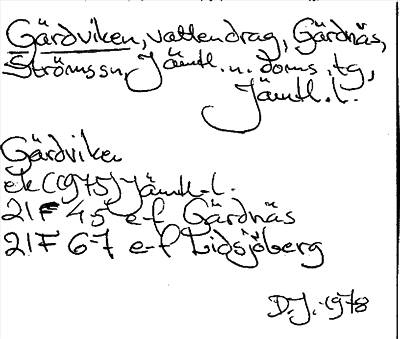 Gärdviken, vattendrag, Gärdnäs,
Strömssn, Jämtl. n. doms. tg,
Jämtl. l.
Gärdviken
ek (1975) Jämtl. l.
21F 4-5 e-f Gärdnäs
21F 6-7 e-f Lidsjöberg
D.J. 1978